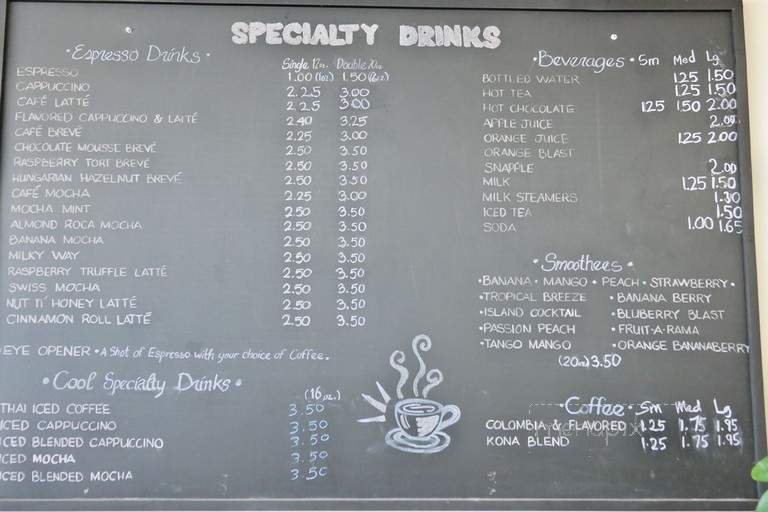 SPECIALTY DRINKS
• Espresso Drinks •
Single 12oz. Double 20oz.
ESPRESSO 1.00 (1oz) 1.50 (2oz)
CAPPUCCINO 2.25 3.00
CAFÉ LATTÉ 2.25 3.00
FLAVORED CAPPUCCINO & LATTÉ 2.40 3.25
CAFÉ BREVÉ 2.25 3.00
CHOCOLATE MOUSSE BREVÉ 2.50 3.50
RASPBERRY TORT BREVÉ 2.50 3.50
HUNGARIAN HAZELNUT BREVÉ 2.50 3.50
CAFÉ MOCHA 2.25 3.00
MOCHA MINT 2.50 3.50
ALMOND ROCA MOCHA 2.50 3.50
BANANA MOCHA 2.50 3.50
MILKY WAY 2.50 3.50
RASPBERRY TRUFFLE LATTÉ 2.50 3.50
SWISS MOCHA 2.50 3.50
NUT N' HONEY LATTÉ 2.50 3.50
CINNAMON ROLL LATTÉ 2.50 3.50
EYE OPENER • A Shot of Espresso with your choice of Coffee.
• Cool Specialty Drinks •
(16 oz.)
THAI ICED COFFEE 3.50
ICED CAPPUCCINO 3.50
ICED BLENDED CAPPUCCINO 3.50
ICED MOCHA 3.50
ICED BLENDED MOCHA 3.50
• Beverages • Sm Med Lg
BOTTLED WATER 1.25 1.50
HOT TEA 1.25 1.50
HOT CHOCOLATE 1.25 1.50 2.00
APPLE JUICE 2.00
ORANGE JUICE 1.25 2.00
ORANGE BLAST
SNAPPLE 2.00
MILK 1.25 1.50
MILK STEAMERS 1.30
ICED TEA 1.50
SODA 1.00 1.65
• Smoothees •
• BANANA • MANGO • PEACH • STRAWBERRY •
• TROPICAL BREEZE • BANANA BERRY
• ISLAND COCKTAIL • BLUBERRY BLAST
• PASSION PEACH • FRUIT-A-RAMA
• TANGO MANGO • ORANGE BANANABERRY
(20oz) 3.50
• Coffee • Sm Med Lg
COLOMBIA & FLAVORED 1.25 1.75 1.95
KONA BLEND 1.25 1.75 1.95
menupix